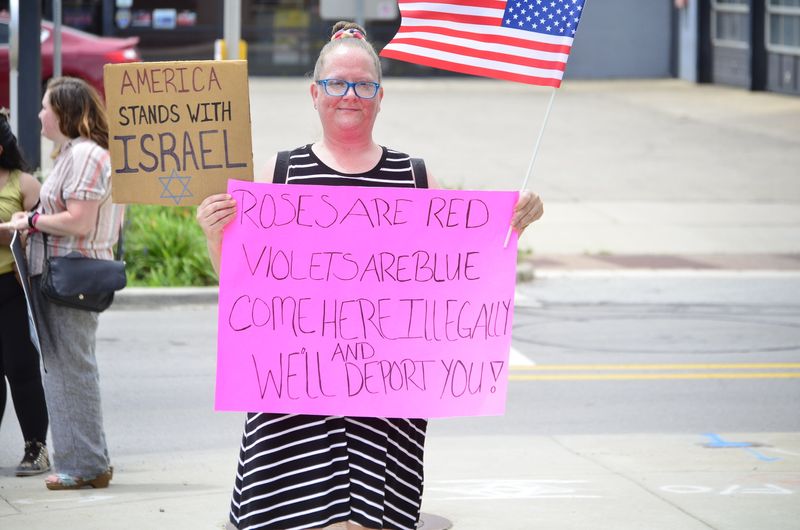 AMERICA
STANDS WITH
ISRAEL
ROSES ARE RED
VIOLETS ARE BLUE
COME HERE ILLEGALLY
AND
WE'LL DEPORT YOU!